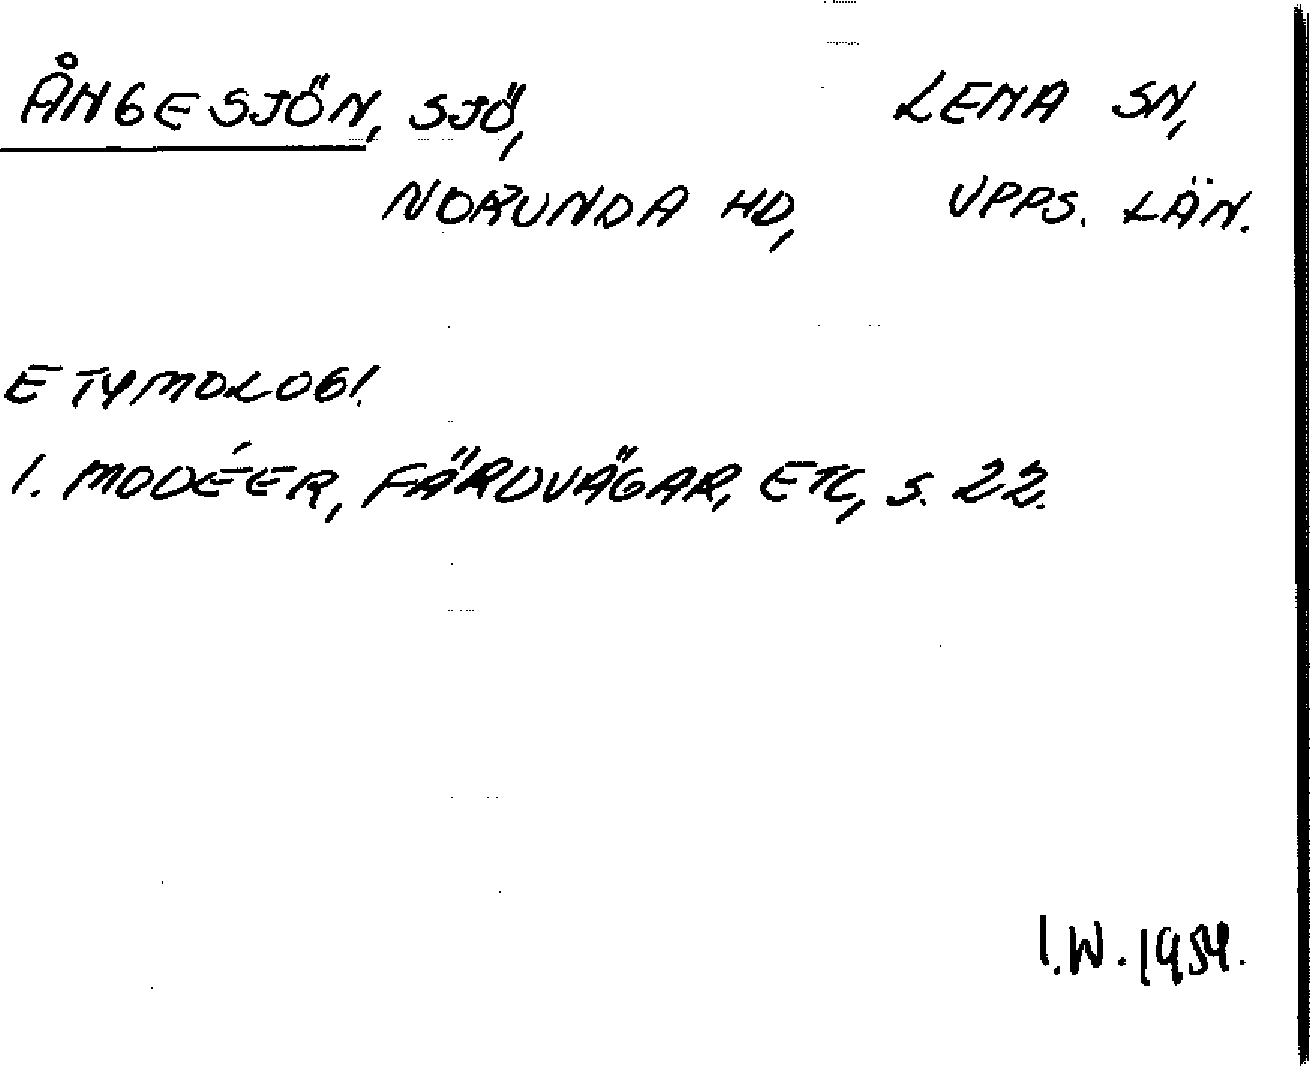 ÅNGESJÖN, SJÖ, LENA SN,
NORUNDA HD, UPPS. LÄN.
ETYMOLOGI.
1. MODÉER, FÄRDVÄGAR, ETC, S. 22.
I.W. 1954.